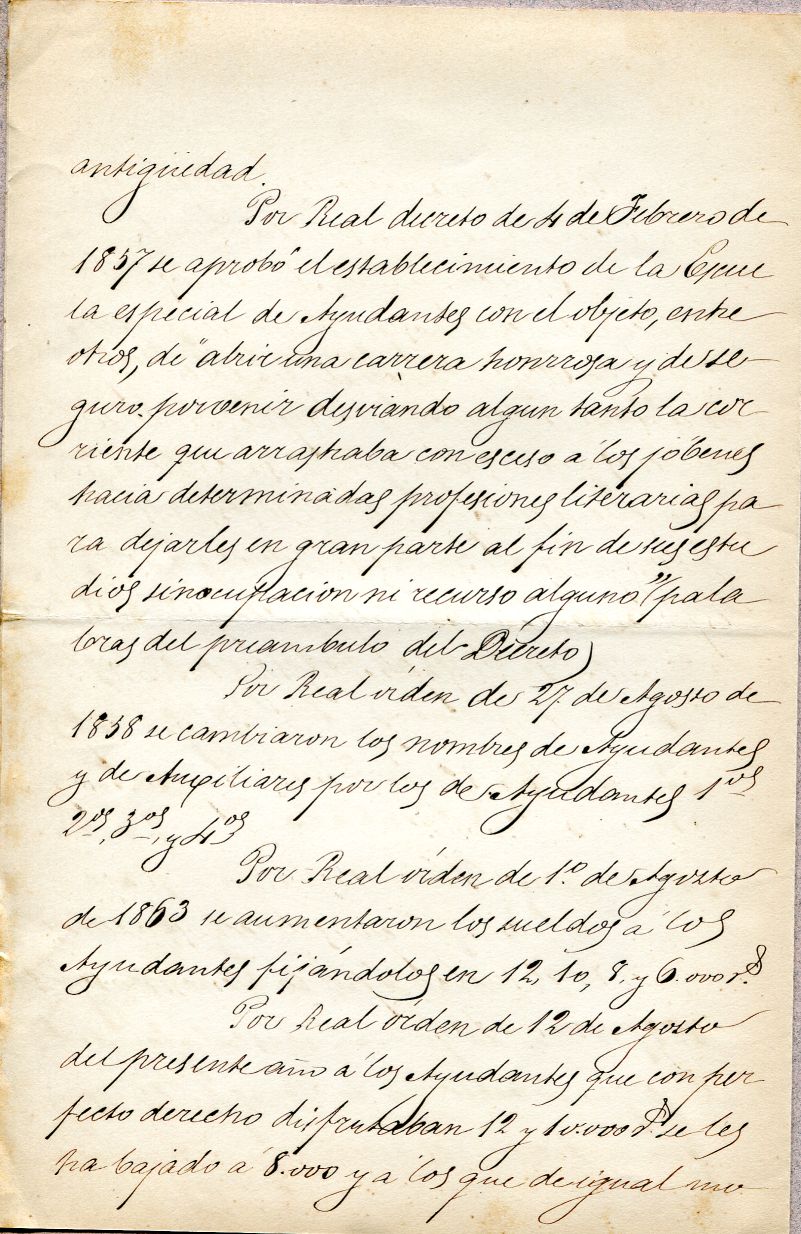 antigüedad.
Por Real decreto de 4 de Febrero de
1857 se aprobó el establecimiento de la Escue
la especial de Ayudantes con el objeto, entre
otros, de "abrir una carrera honrrosa y de se-
guro porvenir desviando algun tanto la cor-
riente que arrastraba con esceso á los jóbenes
hacia determinadas profesiones literarias pa
ra dejarles en gran parte al fin de sus estu
dios sin ocupacion ni recurso alguno" (pala
bras del preambulo del Decreto)
Por Real órden de 27 de Agosto de
1858 se cambiaron los nombres de Ayudantes
y de Auxiliares por los de Ayudantes 1os
2os, 3os, y 4os
Por Real órden de 1º de Agosto
de 1863 se aumentaron los sueldos á los
Ayudantes fijándolos en 12, 10, 8, y 6.000 rs.
Por Real órden de 12 de Agosto
del presente año á los Ayudantes que con per-
fecto derecho disfrutaban 12 y 10.000 rs. se les
ha bajado á 8.000 y á los que de igual mo